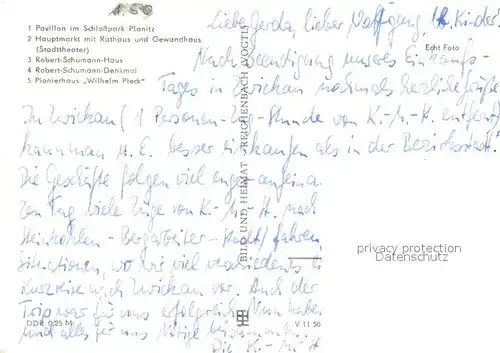 1 Pavillon im Schloßpark Planitz
2 Hauptmarkt mit Rathaus und Gewandhaus
(Stadttheater)
3 Robert-Schumann-Haus
4 Robert-Schumann-Denkmal
5 Pionierhaus „Wilhelm Pieck"
Echt Foto
BILD UND HEIMAT REICHENBACH (VOGTL)
Liebe Gerda, lieber Wolfgang, lb. Kinder.
Nach Beendigung unseres Einkaufs-
Tages in Zwickau nochmals herzliche Grüße
In Zwickau (1 Personen-Zug-Stunde von K.-M.-St. entfernt)
kann man m. E. besser einkaufen als in der Bezirksstadt.
Die Geschäfte folgen viel enger
Tag viele Züge von K.-M.-St. nach
Steinkohlen-Bergarbeiter-Stadt fahren
Situationen, wo wir viel
Kurzreise nach Zwickau war. Auch der
Trip war für uns erfolgreich. Nun haben
und alles für uns Nötige
Die K.-M.-St
privacy protection
Datenschutz
DDR 0,25 M
V 11 50